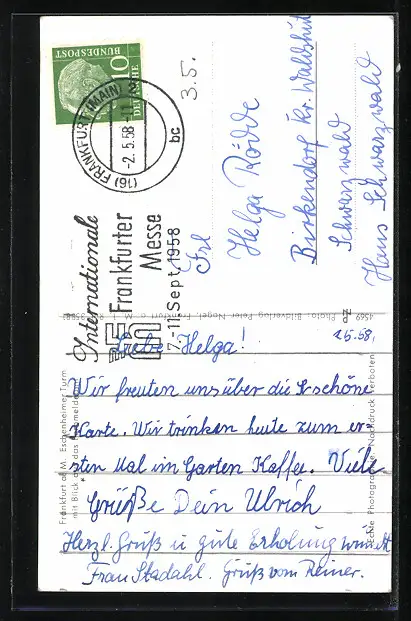 DEUTSCHE
BUNDESPOST
10
(16) FRANKFURT (MAIN)
-2.5.58
bc
3.5.
Internationale
Frankfurter
Messe
7.-11. Sept. 1958
Frl
Helga Rödde
Birkendorf Kr. Waldshut
Schwarzwald
Haus Schwarzwald
4569 Photo: Bildverlag Peter Nagel, Frankfurt a. M.
Frankfurt a. M. Eschenheimer Turm
mit Blick auf das
Echte Photographie Nachdruck verboten
2.5.58.
Liebe Helga!
Wir freuten uns über die so schöne
Karte. Wir trinken heute zum er-
sten Mal im Garten Kaffee. Viele
Grüße Dein Ulrich
Herzl. Gruß u gute Erholung wünscht
Frau Stadahl. Gruß vom Reiner.